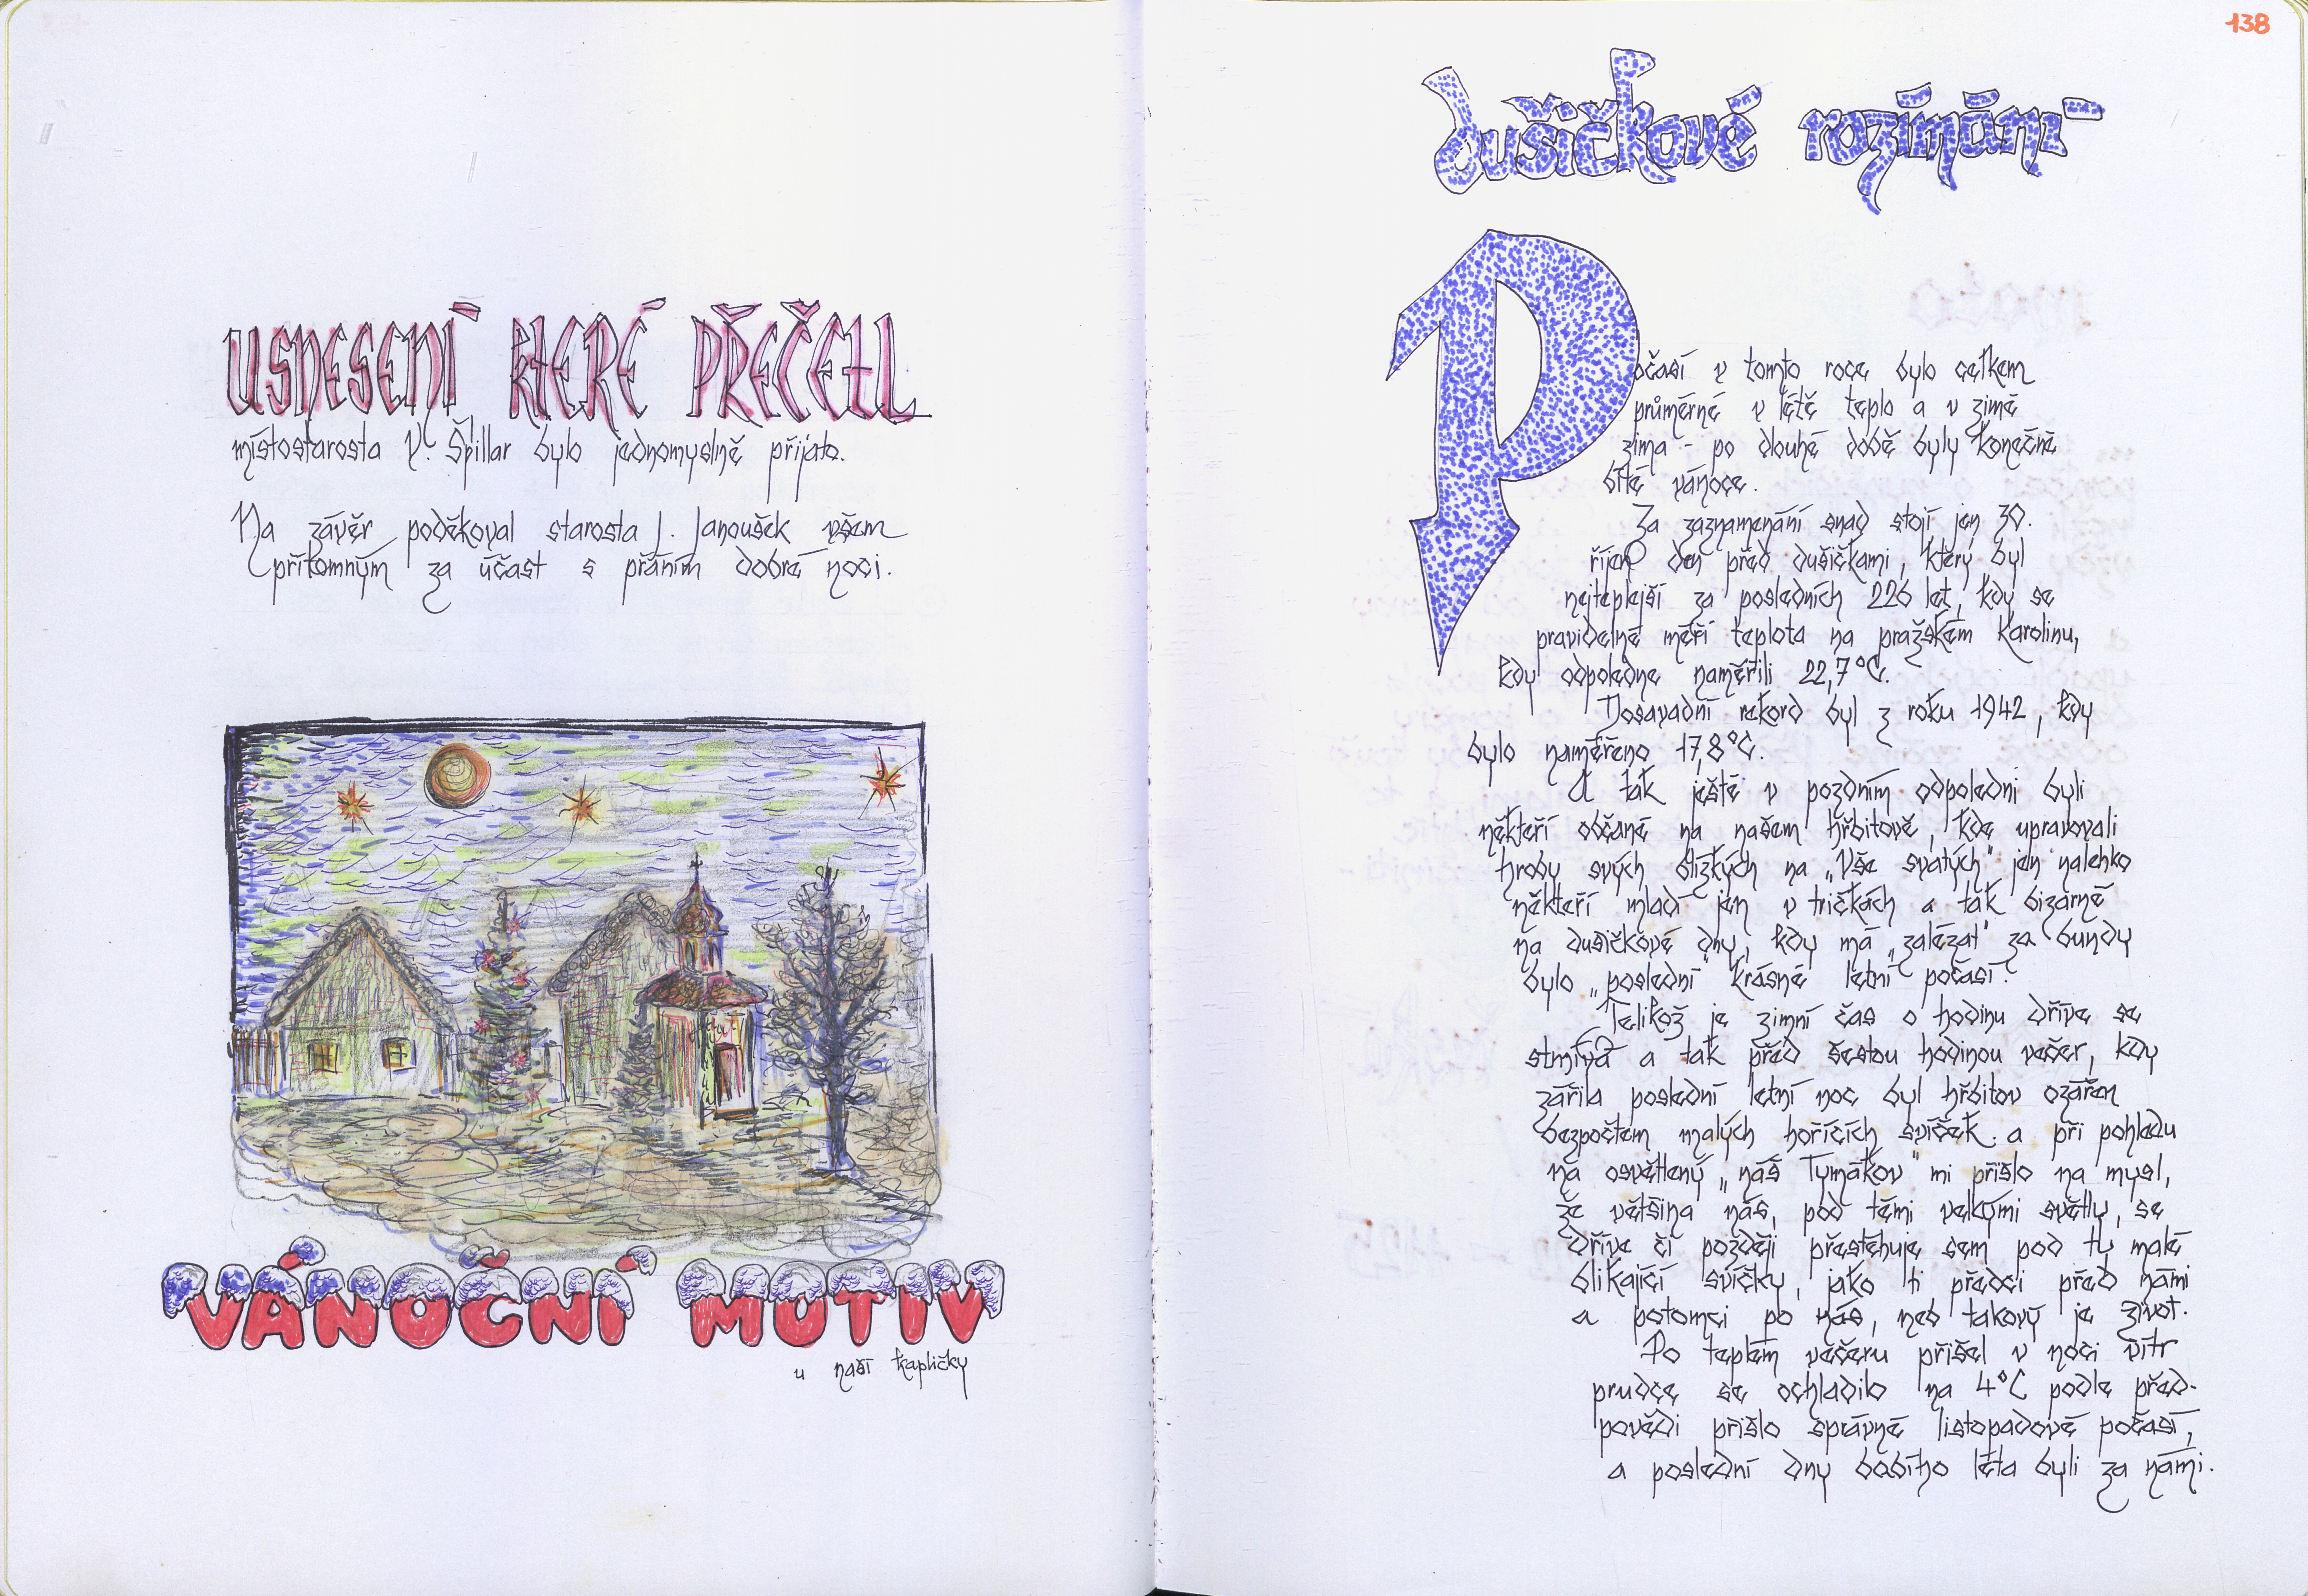 USNESENÍ KTERÉ PŘEČETL
místostarosta V. Špillar bylo jednomyslně přijato.
Na závěr poděkoval starosta J. Janoušek všem
přítomným za účast s přáním dobré noci.
VÁNOČNÍ MOTIV
u naší kapličky
138
dušičkové rozímání
Počasí v tomto roce bylo celkem
průměrné v létě teplo a v zimě
zima - po dlouhé době byly konečně
bílé vánoce.
Za zaznamenání snad stojí jen 30.
říjen den před dušičkami, který byl
nejteplejší za posledních 226 let, kdy se
pravidelně měří teplota na pražském Karolinu,
kdy odpoledne naměřili 22,7°C.
Dosavadní rekord byl z roku 1942, kdy
bylo naměřeno 17,8°C.
A tak ještě v pozdním odpoledni byli
někteří občané na našem hřbitově, kde upravovali
hroby svých blízkých na „Vše svatých" jen nalehko
někteří mladí jen v tričkách a tak bizarně
na dušičkové dny, kdy má „zalézat" za bundy
bylo „poslední" krásné letní počasí.
Jelikož je zimní čas o hodinu dříve se
stmívá a tak před šestou hodinou večer, kdy
zářila poslední letní noc byl hřbitov ozářen
bezpočtem malých hořících svíček a při pohledu
na osvětlený „náš Tymákov" mi přišlo na mysl,
že většina nás, pod těmi velkými světly, se
dříve či později přestěhuje sem pod ty malé
blikající svíčky, jako ti předci před námi
a potomci po nás, neb takový je život.
Po teplém večeru přišel v noci vítr
prudce se ochladilo na 4°C podle před-
povědi přišlo správné listopadové počasí,
a poslední dny babího léta byli za námi.